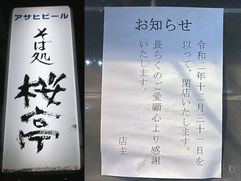 アサヒビール
そば処
桜亭
お知らせ
令和二年十二月三十一日を
以って、閉店いたします。
長らくのご愛顧心より感謝
いたします。
店主